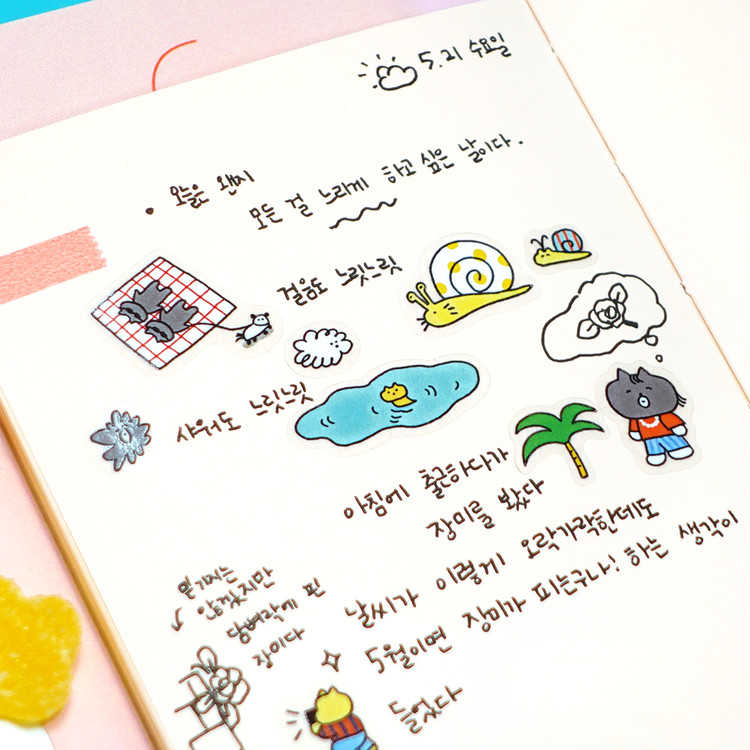 5.21 수요일
• 오늘은 왠지
모든 걸 느리게 하고 싶은 날이다.
걸음도 느릿느릿
샤워도 느릿느릿
아침에 출근하다가
장미를 봤다
날씨가 이렇게 오락가락한데도
5월이면 장미가 피는구나! 하는 생각이
들었다
믿기지는
않겠지만
담벼락에 핀
장미다